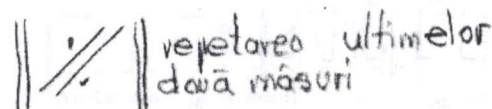 repetarea ultimelor
două măsuri